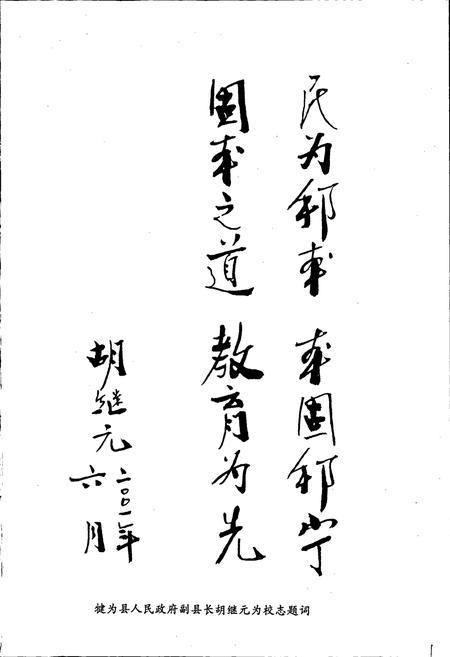 民为邦本 本固邦宁
固本之道 教育为先
胡继元 二〇〇一年
六月
犍为县人民政府副县长胡继元为校志题词